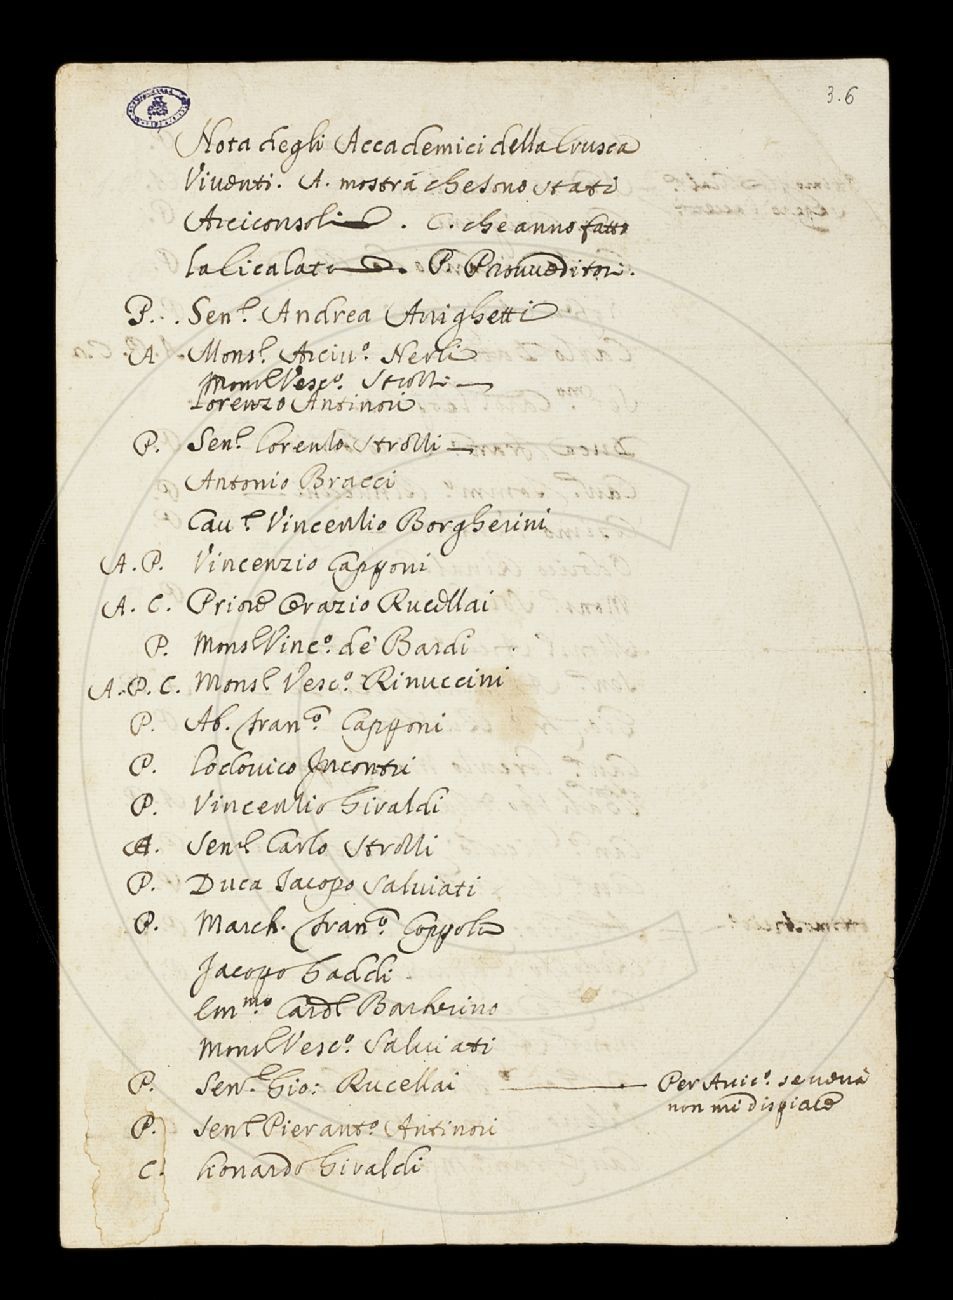 3.6
Nota degli Accademici della Crusca
Viventi. A. mostra che sono stati
Arciconsoli. C. che anno fatto
la Cicalata. P. Provveditori.
P. Sen.r Andrea Arrighetti
A. Mons.r Arciv.o Nerli
Mons.r Vesc.o Strozzi
Lorenzo Antinori
P. Sen.r Lorenzo Strozzi
Antonio Bracci
Cav.r Vincenzio Borgherini
A. P. Vincenzio Capponi
A. C. Priore Orazio Rucellai
P. Mons.r Vinc.o de Bardi
A. P. C. Mons.r Vesc.o Rinuccini
P. Ab. Fran.co Capponi
P. Lodovico Incontri
P. Vincenzio Giraldi
A. Sen.r Carlo Strozzi
P. Duca Jacopo Salviati
P. March. Fran.co Coppoli
Jacopo Gaddi
Em.mo Card.l Barberino
Mons.r Vesc.o Salviati
P. Sen.r Gio: Rucellai Per Arcic.o
non mi dispiace
P. Sen.r Pierant.o Antinori
C. Lionardo Giraldi